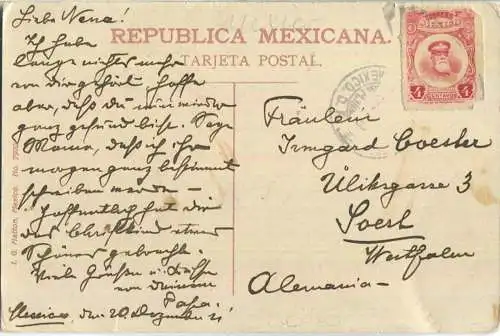 Mexico
REPUBLICA MEXICANA.
TARJETA POSTAL.
MEXICO
4 4
MEXICO, D.
Liebe Nena!
Ich habe
lange nichts mehr
von dir gehört, hoffe
aber, daß du nun wieder
ganz gesund bist. Sage
Mama, daß ich ihr
morgen ganz bestimmt
schreiben werde –
Hoffentlich hat dir
das Christkind etwas
Schönes gebracht.
Viele Grüße u. Küsse
von deinem
Papa.
Mexico, den 26. Dezember 21
Fräulein
Irmgard Coester
Ülrikgasse 3
Soest
Westfalen
Alemania –
J. G. Hatton, Mexico. No.